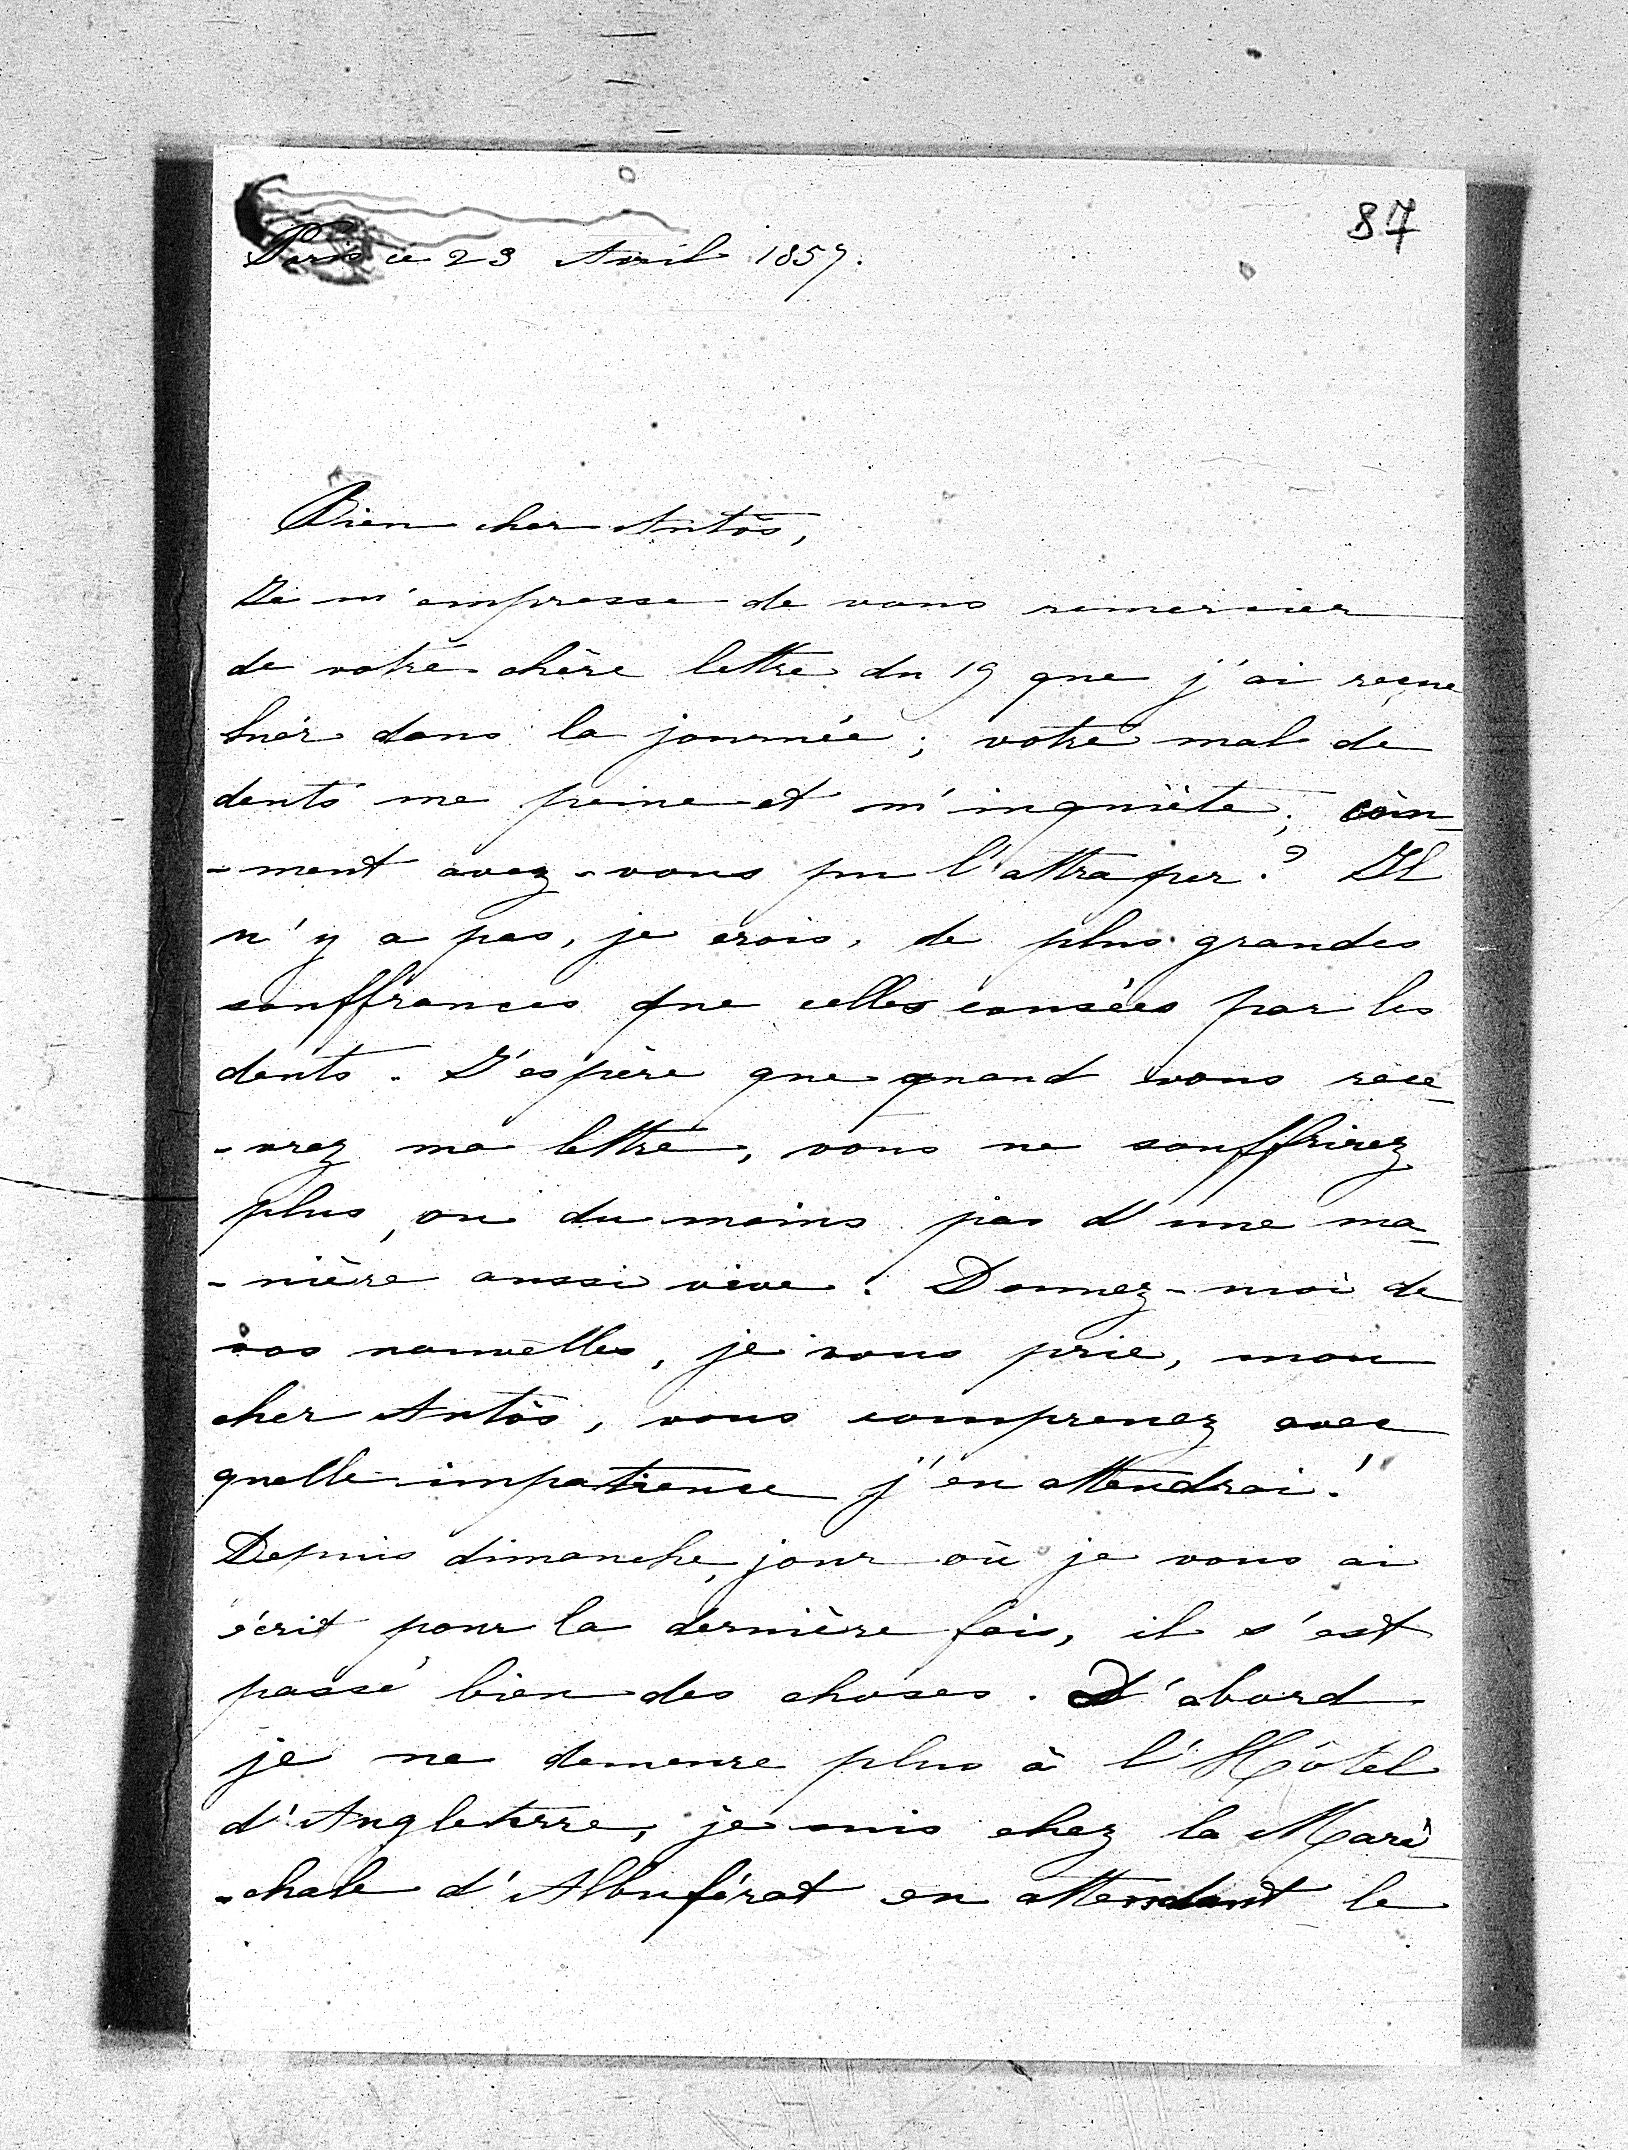 87
Paris ce 23 Avril 1857.
Bien cher Antós,
Je m'empresse de vous remercier
de votre chère lettre du 19 que j'ai reçue
hier dans la journée ; votre mal de
dents me peine et m'inquiète ; com-
-ment avez-vous pu l'attraper ? Il
n'y a pas, je crois, de plus grandes
souffrances que celles causées par les
dents. J'espère que quand vous rece-
-vrez ma lettre, vous ne souffrirez
plus, ou du moins pas d'une ma-
-nière aussi vive. Donnez-moi de
vos nouvelles, je vous prie, mon
cher Antós, vous comprenez avec
quelle impatience j'en attendrai !
Depuis dimanche, jour où je vous ai
écrit pour la dernière fois, il s'est
passé bien des choses. D'abord
je ne demeure plus à l'Hôtel
d'Angleterre, je suis chez la Maré-
-chale d'Albuférat en attendant le